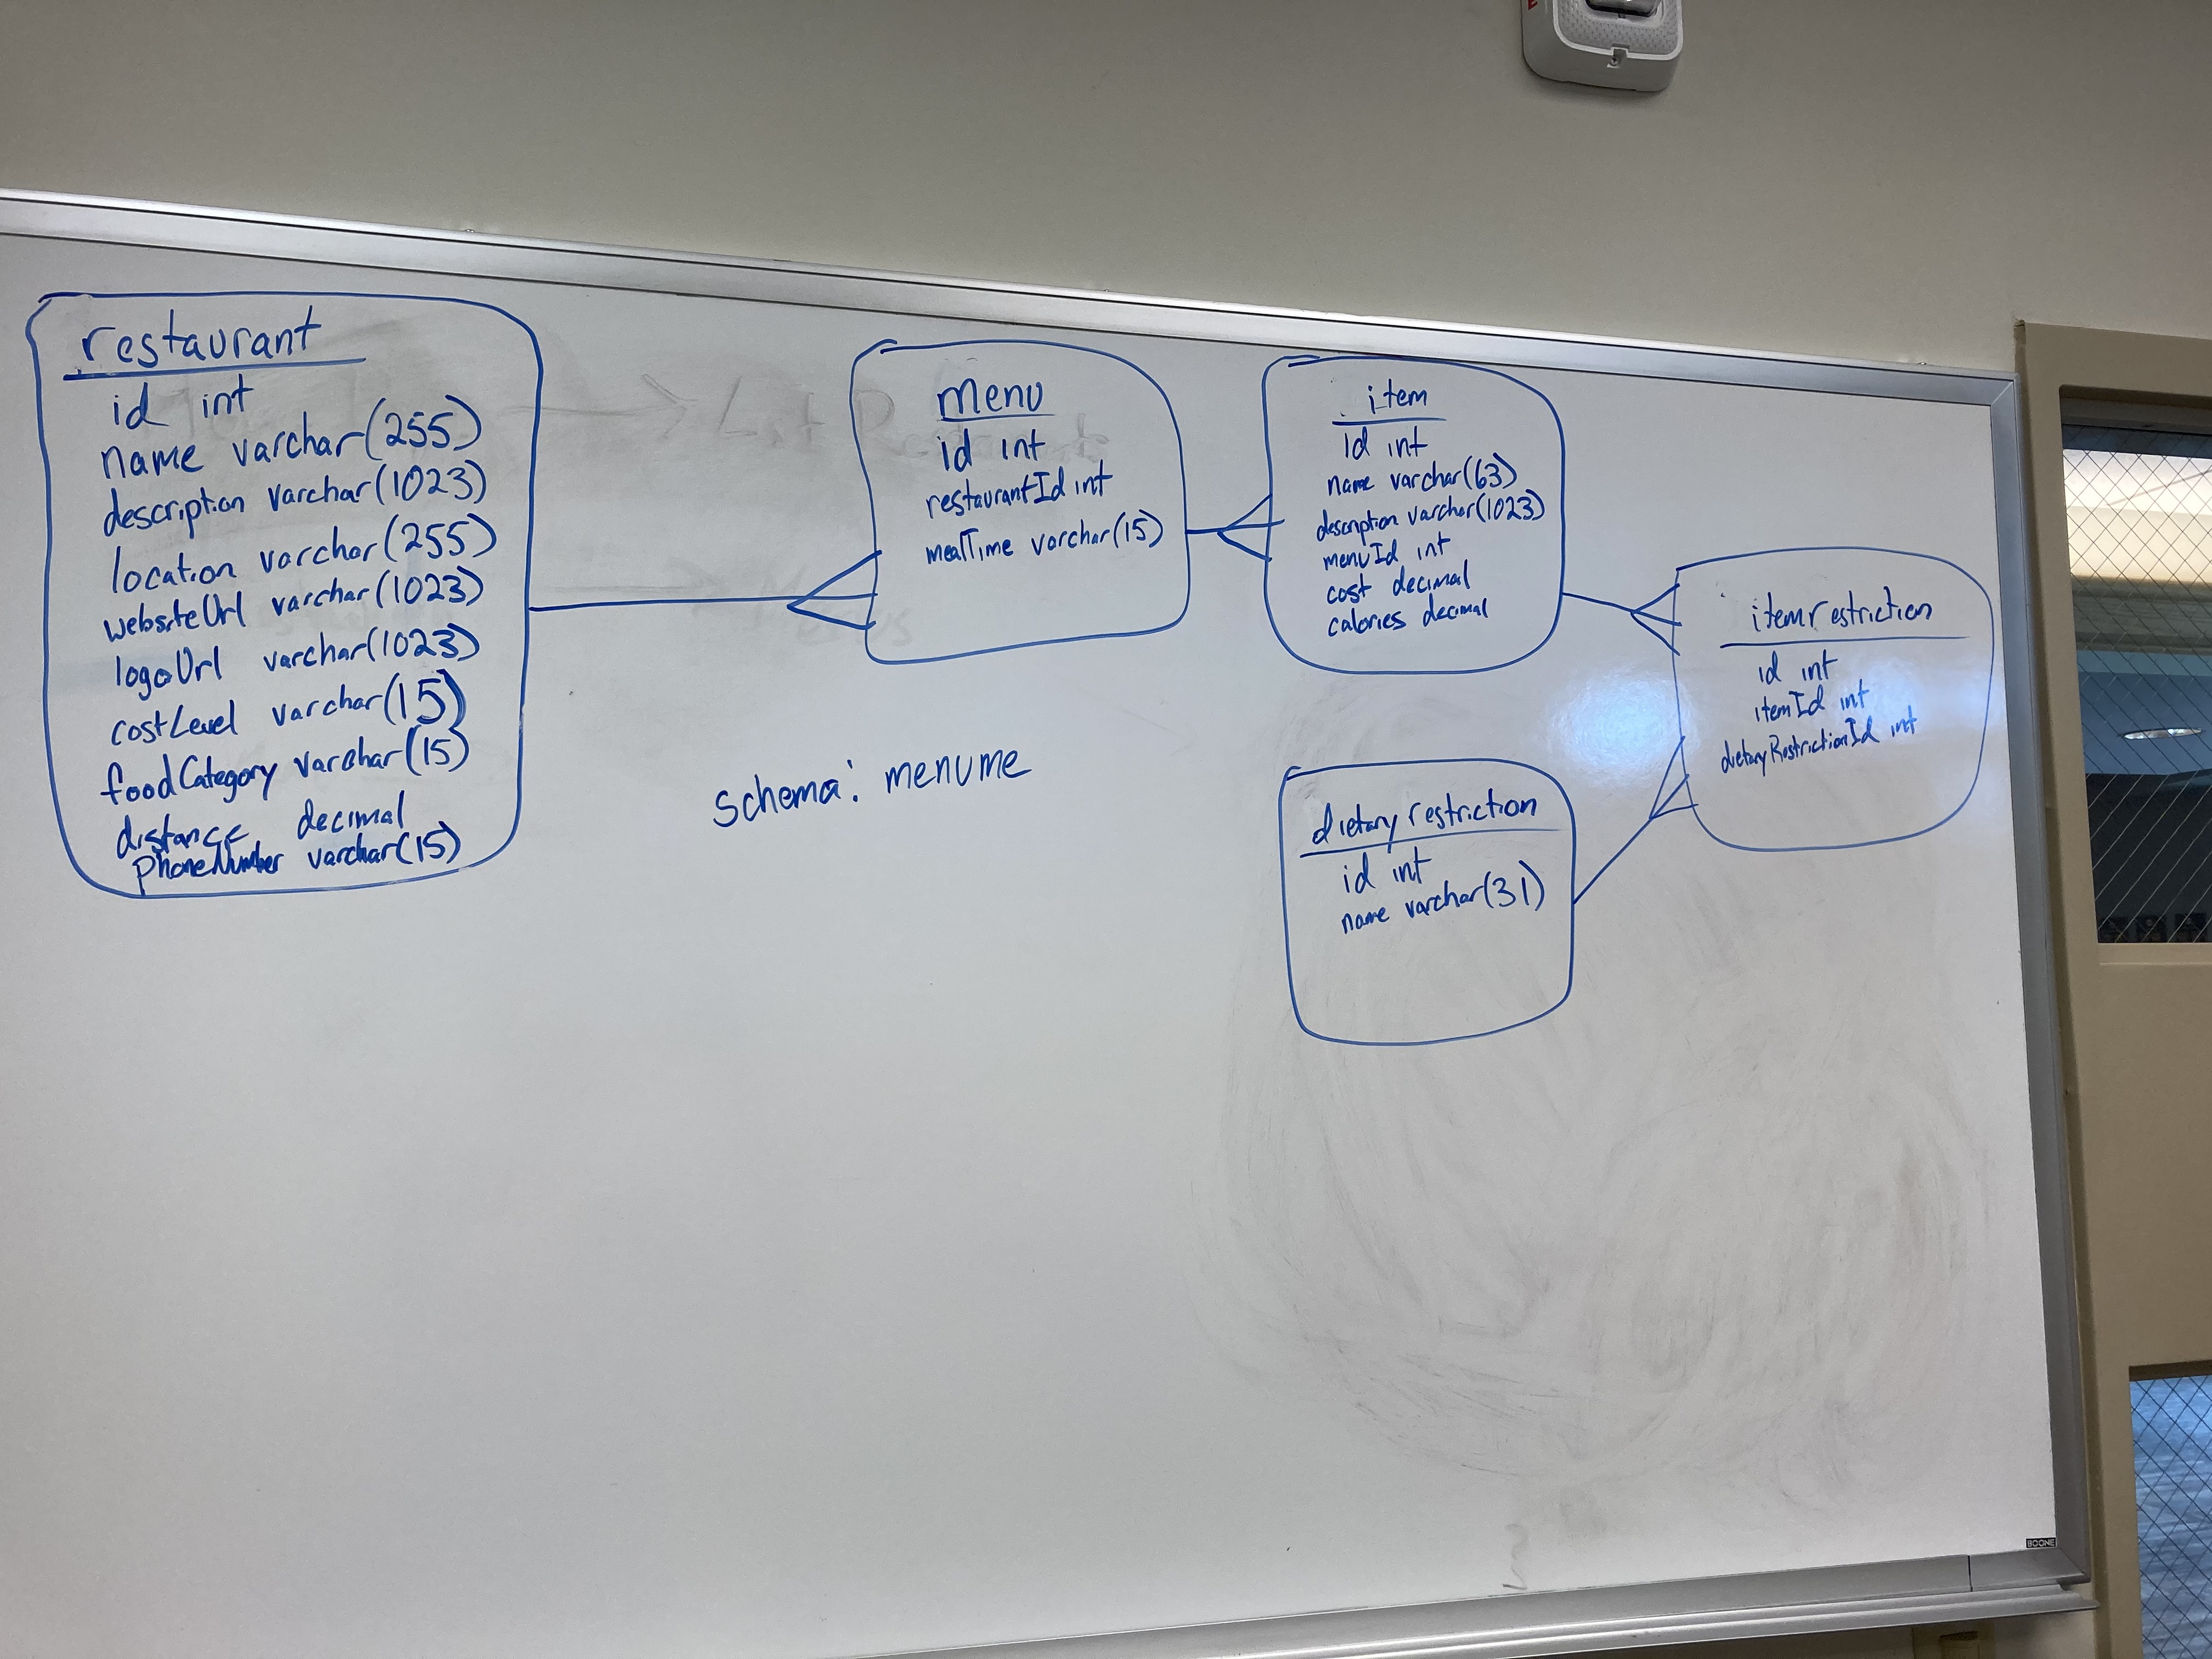 restaurant
id int
name varchar(255)
description varchar(1023)
location varchar(255)
websiteUrl varchar(1023)
logoUrl varchar(1023)
costLevel varchar(15)
foodCategory varchar(15)
distance decimal
PhoneNumber varchar(15)
menu
id int
restaurantId int
mealTime varchar(15)
item
id int
name varchar(63)
description varchar(1023)
menuId int
cost decimal
calories decimal
itemrestriction
id int
itemId int
dietaryRestrictionId int
dietaryrestriction
id int
name varchar(31)
schema: menume
BOONE